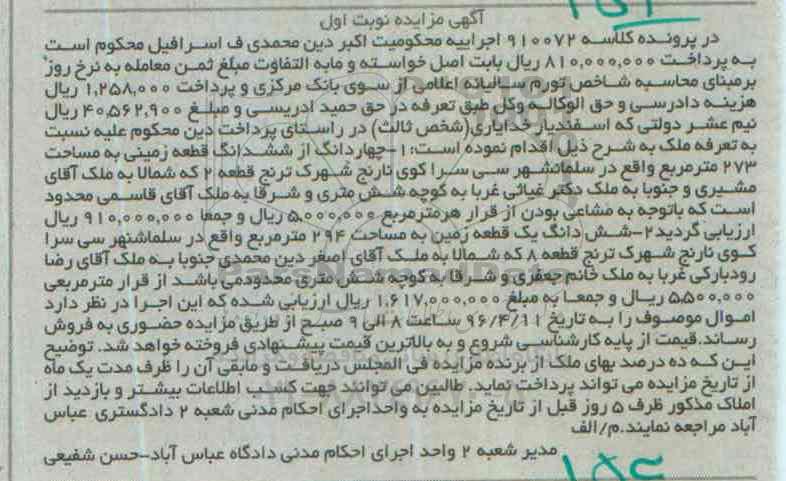 آگهی مزایده نوبت اول
در پرونده کلاسه ۹۱۰۰۷۲ اجراییه محکومیت اکبر دین محمدی ف اسرافیل محکوم است
به پرداخت ۸۱۰,۰۰۰,۰۰۰ ریال بابت اصل خواسته و مابه التفاوت مبلغ ثمن معامله به نرخ روز
برمبنای محاسبه شاخص تورم سالیانه اعلامی از سوی بانک مرکزی و پرداخت ۱,۲۵۸,۰۰۰ ریال
هزینه دادرسی و حق الوکاله وکل طبق تعرفه در حق حمید ادریسی و مبلغ ۴۰,۵۶۲,۹۰۰ ریال
نیم عشر دولتی که اسفندیار خدایاری(شخص ثالث) در راستای پرداخت دین محکوم علیه نسبت
به تعرفه ملک به شرح ذیل اقدام نموده است:۱-چهاردانگ از ششدانگ قطعه زمینی به مساحت
۲۷۳ مترمربع واقع در سلمانشهر سی سرا کوی نارنج شهرک ترنج قطعه ۲ که شمالا به ملک آقای
مشیری و جنوبا به ملک دکتر غیاثی غربا به کوچه شش متری و شرقا به ملک آقای قاسمی محدود
است که باتوجه به مشاعی بودن از قرار هرمترمربع ۵,۰۰۰,۰۰۰ ریال و جمعا ۹۱۰,۰۰۰,۰۰۰ ریال
ارزیابی گردید۲-شش دانگ یک قطعه زمین به مساحت ۲۹۴ مترمربع واقع در سلماشنهر سی سرا
کوی نارنج شهرک ترنج قطعه ۸ که شمالا به ملک آقای اصغر دین محمدی جنوبا به ملک آقای رضا
رودبارکی غربا به ملک خانم جعفری و شرقا به کوچه شش متری محدودمی باشد از قرار مترمربعی
۵,۵۰۰,۰۰۰ ریال و جمعا به مبلغ ۱,۶۱۷,۰۰۰,۰۰۰ ریال ارزیابی شده که این اجرا در نظر دارد
اموال موصوف را به تاریخ ۹۶/۴/۱۱ ساعت ۸ الی ۹ صبح از طریق مزایده حضوری به فروش
رساند.قیمت از پایه کارشناسی شروع و به بالاترین قیمت پیشنهادی فروخته خواهد شد. توضیح
این که ده درصد بهای ملک از برنده مزایده فی المجلس دریافت و مابقی آن را ظرف مدت یک ماه
از تاریخ مزایده می تواند پرداخت نماید. طالبین می توانند جهت کسب اطلاعات بیشتر و بازدید از
املاک مذکور ظرف ۵ روز قبل از تاریخ مزایده به واحداجرای احکام مدنی شعبه ۲ دادگستری عباس
آباد مراجعه نمایند.م/الف
مدیر شعبه ۲ واحد اجرای احکام مدنی دادگاه عباس آباد-حسن شفیعی